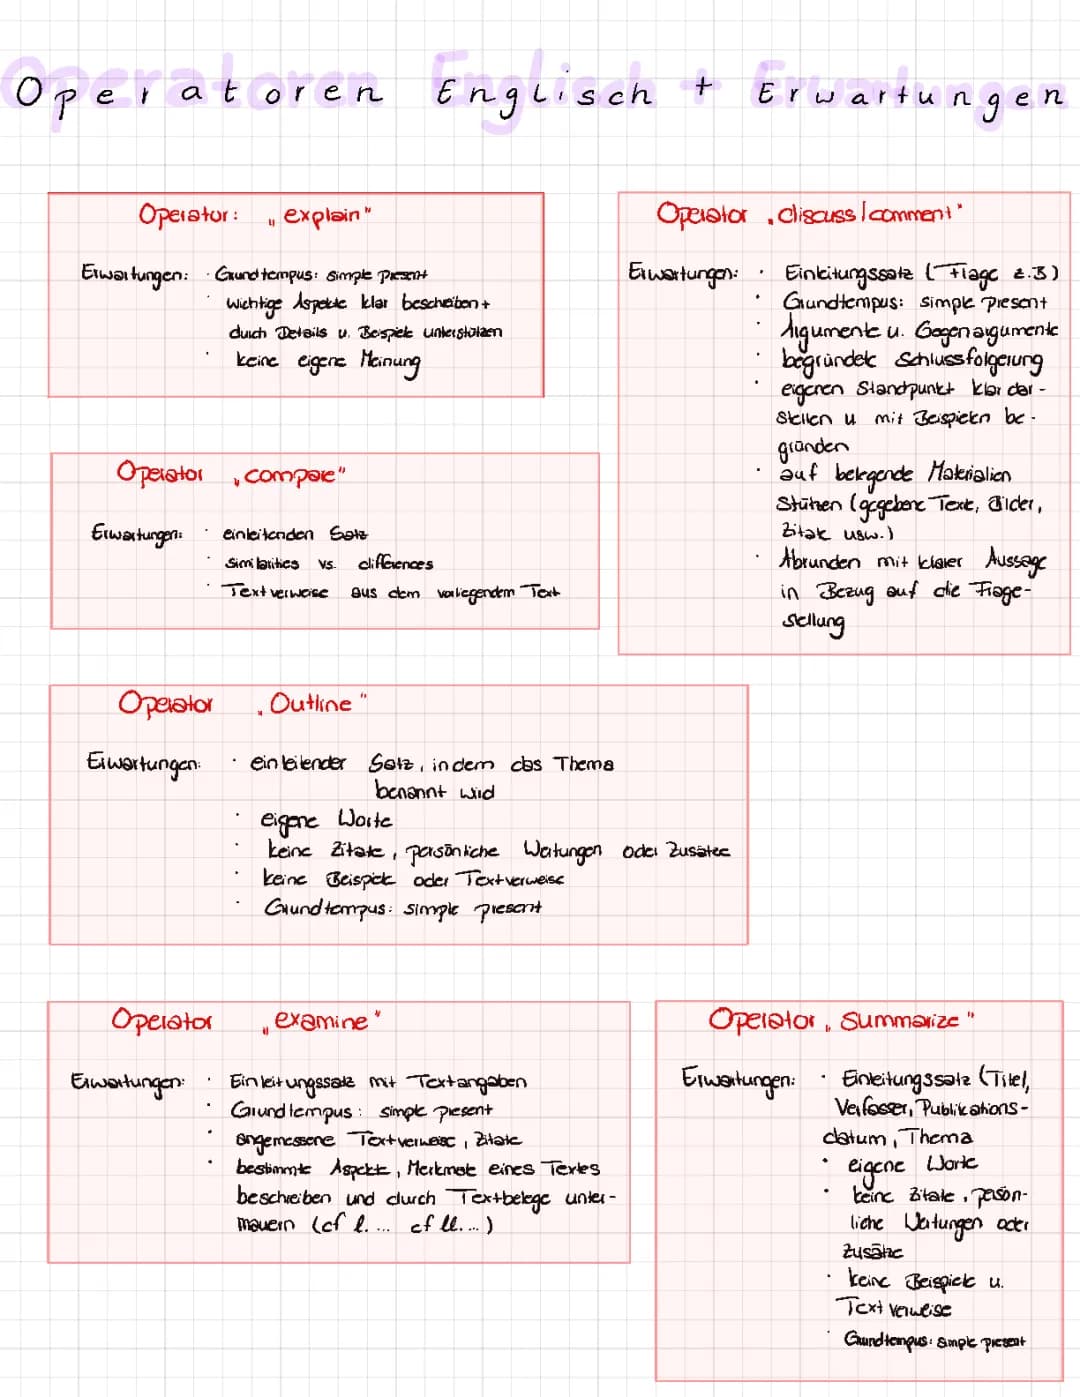 Operatoren Englisch + Erwartungen
Operator: „explain"
Erwartungen: · Grundtempus: simple present
· wichtige Aspekte klar beschreiben +
durch Details u. Beispiele unterstützen
· keine eigene Meinung
Operator „discuss/comment"
Erwartungen: · Einleitungssatz (Frage z.B)
· Grundtempus: simple present
· Argumente u. Gegenargumente
· begründete Schlussfolgerung
· eigenen Standpunkt klar dar-
stellen u mit Beispielen be-
gründen
· auf belegende Materialien
stützen (gegebene Texte, Bilder,
Zitate usw.)
· Abrunden mit klarer Aussage
in Bezug auf die Frage-
stellung
Operator „compare"
Erwartungen: · einleitenden Satz
· Similarities vs. differences
· Textverweise aus dem vorliegendem Text
Operator „Outline"
Erwartungen: · einleitender Satz, indem das Thema
benannt wird
· eigene Worte
· keine Zitate, persönliche Wertungen oder Zusätze
· keine Beispiele oder Textverweise
· Grundtempus: simple present
Operator „examine"
Erwartungen: · Einleitungssatz mit Textangaben
· Grundtempus: simple present
· angemessene Textverweise, Zitate
· bestimmte Aspekte, Merkmale eines Textes
beschreiben und durch Textbelege unter-
mauern (cf l. ... cf ll. ...)
Operator „Summarize"
Erwartungen: · Einleitungssatz (Titel,
Verfasser, Publikations-
datum, Thema
· eigene Worte
· keine Zitate, persön-
liche Wertungen oder
Zusätze
· keine Beispiele u.
Textverweise
· Grundtempus: simple present